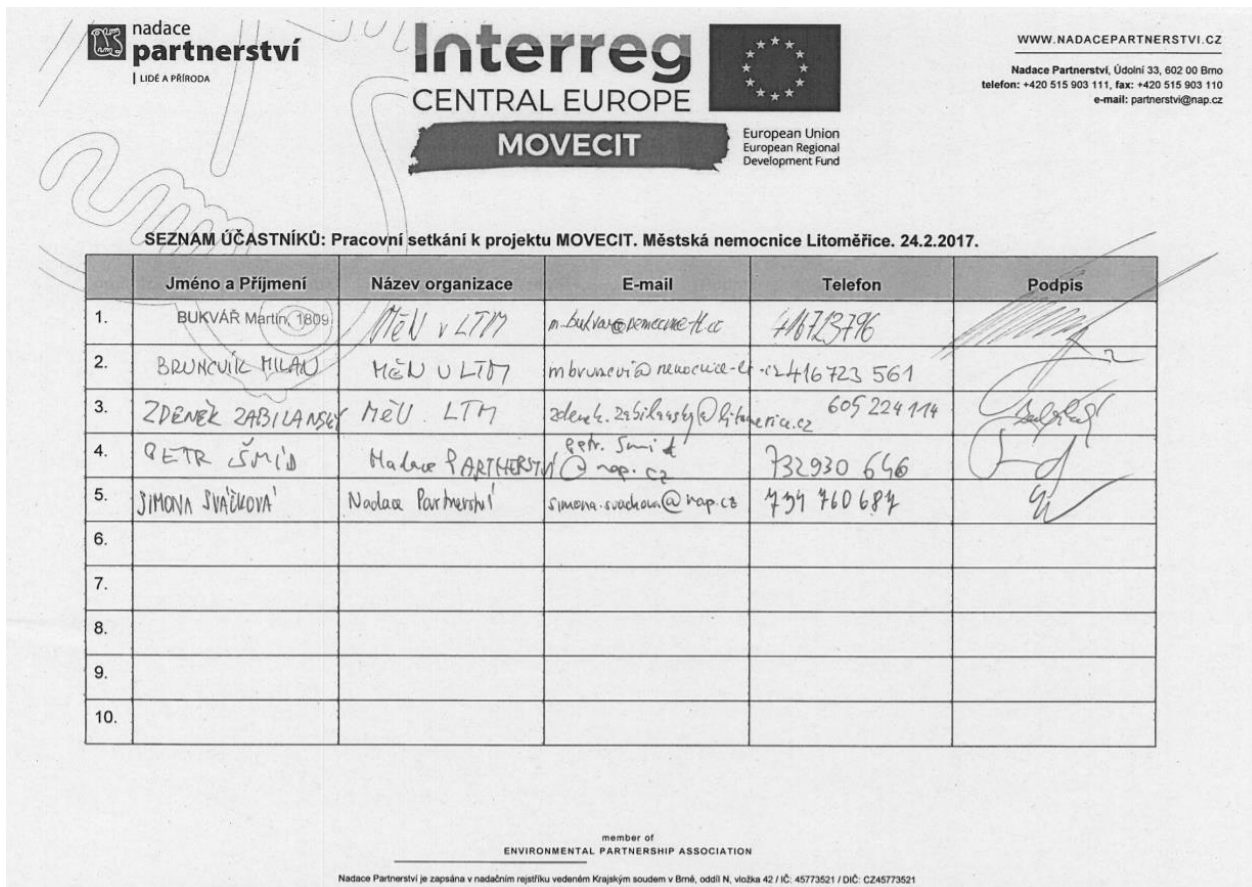 nadace
partnerství
LIDÉ A PŘÍRODA
Interreg
CENTRAL EUROPE
MOVECIT
European Union
European Regional
Development Fund
WWW.NADACEPARTNERSTVI.CZ
Nadace Partnerství, Údolní 33, 602 00 Brno
telefon: +420 515 903 111, fax: +420 515 903 110
e-mail: partnerstvi@nap.cz
SEZNAM ÚČASTNÍKŮ: Pracovní setkání k projektu MOVECIT. Městská nemocnice Litoměřice. 24.2.2017.
Jméno a Příjmení Název organizace E-mail Telefon Podpis
1. BUKVÁŘ Martin, 1809 MěN v LTM 416723796
2. BRUNCVÍK MILAN MěN v LTM 416 723 561
3. ZDENĚK ZABILANSKÝ MěÚ LTM zdenek.zabilansky@litomerice.cz 605 224 114
4. PETR ŠMÍD Nadace PARTNERSTVÍ petr.smid@nap.cz 732930 646
5. SIMONA SVÁČKOVÁ Nadace Partnerství simona.svackova@nap.cz 734 760 687
6.
7.
8.
9.
10.
member of
ENVIRONMENTAL PARTNERSHIP ASSOCIATION
Nadace Partnerství je zapsána v nadačním rejstříku vedeném Krajským soudem v Brně, oddíl N, vložka 42 / IČ: 45773521 / DIČ: CZ45773521